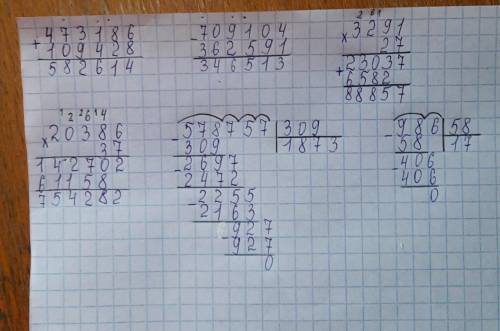 473186
+
109428
582614
709104
-
362591
346513
2 6 1
3291
×
27
23037
+
6582
88857
1 2 2 6 1 4
20386
×
37
142702
61158
754282
578757 309
- 309 1873
2697
- 2472
2255
- 2163
927
- 927
0
986 58
- 58 17
406
- 406
0